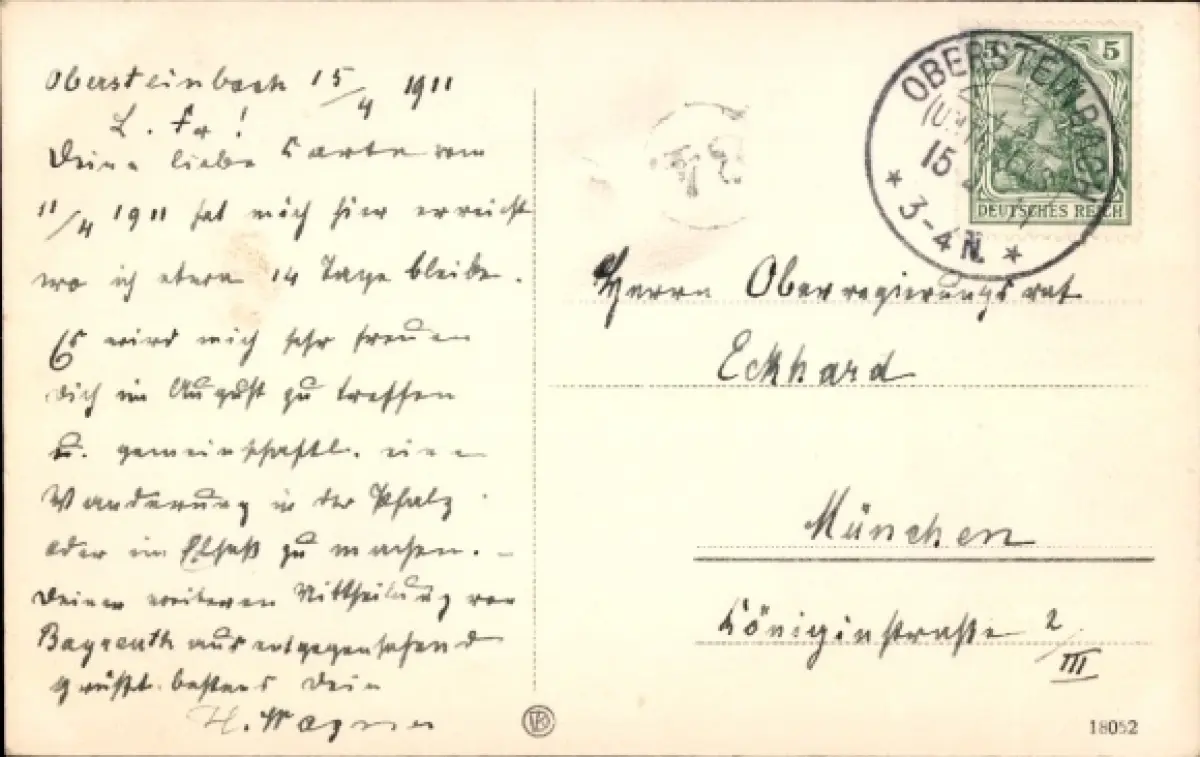 Obersteinbach 15/4 1911
L. Fr!
Deine liebe Carte vom
11/4 1911 hat mich hier erreicht
wo ich etwa 14 Tage bleibe.
Es wird mich sehr freuen
dich im August zu treffen
u. gemeinschaftl. eine
Wanderung in der Pfalz
oder im Elsaß zu machen. –
Deinen weiteren Mittheilung von
Bayreuth aus entgegensehend
grüßt bestens Dein
H. Wagner
OBERSTEINBACH
15
3-4 N.
5 5
DEUTSCHES REICH
Herrn Oberregierungsrat
Eckhard
München
Königinstraße 2/III
18052